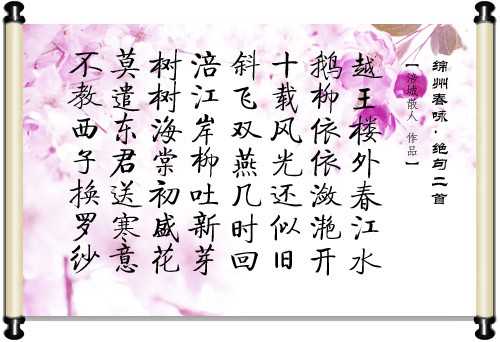 绵州春咏·绝句二首
【涪城散人 作品】
越王楼外春江水
鹅柳依依潋滟开
十载风光还似旧
斜飞双燕几时回
涪江岸柳吐新芽
树树海棠初盛花
莫遣东君送寒意
不教西子换罗纱